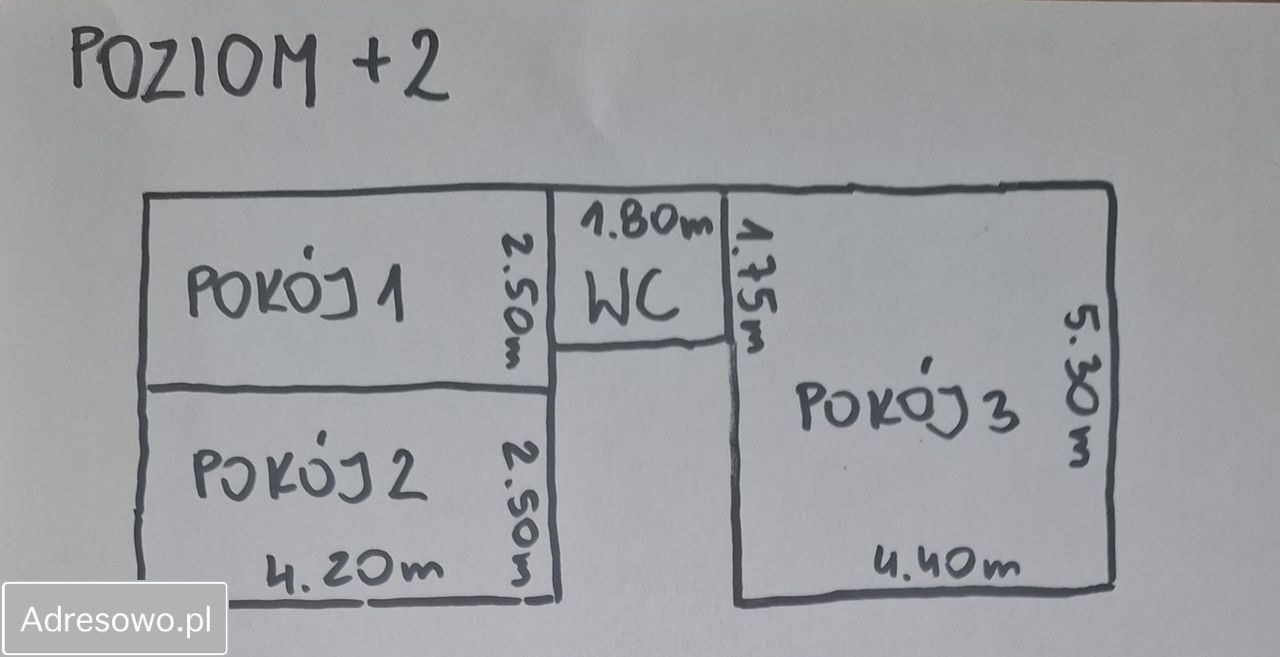 POZIOM +2
POKÓJ 1
2.50m
1.80m
WC
1.75m
POKÓJ 3
5.30m
4.40m
POKÓJ 2
2.50m
4.20m
Adresowo.pl